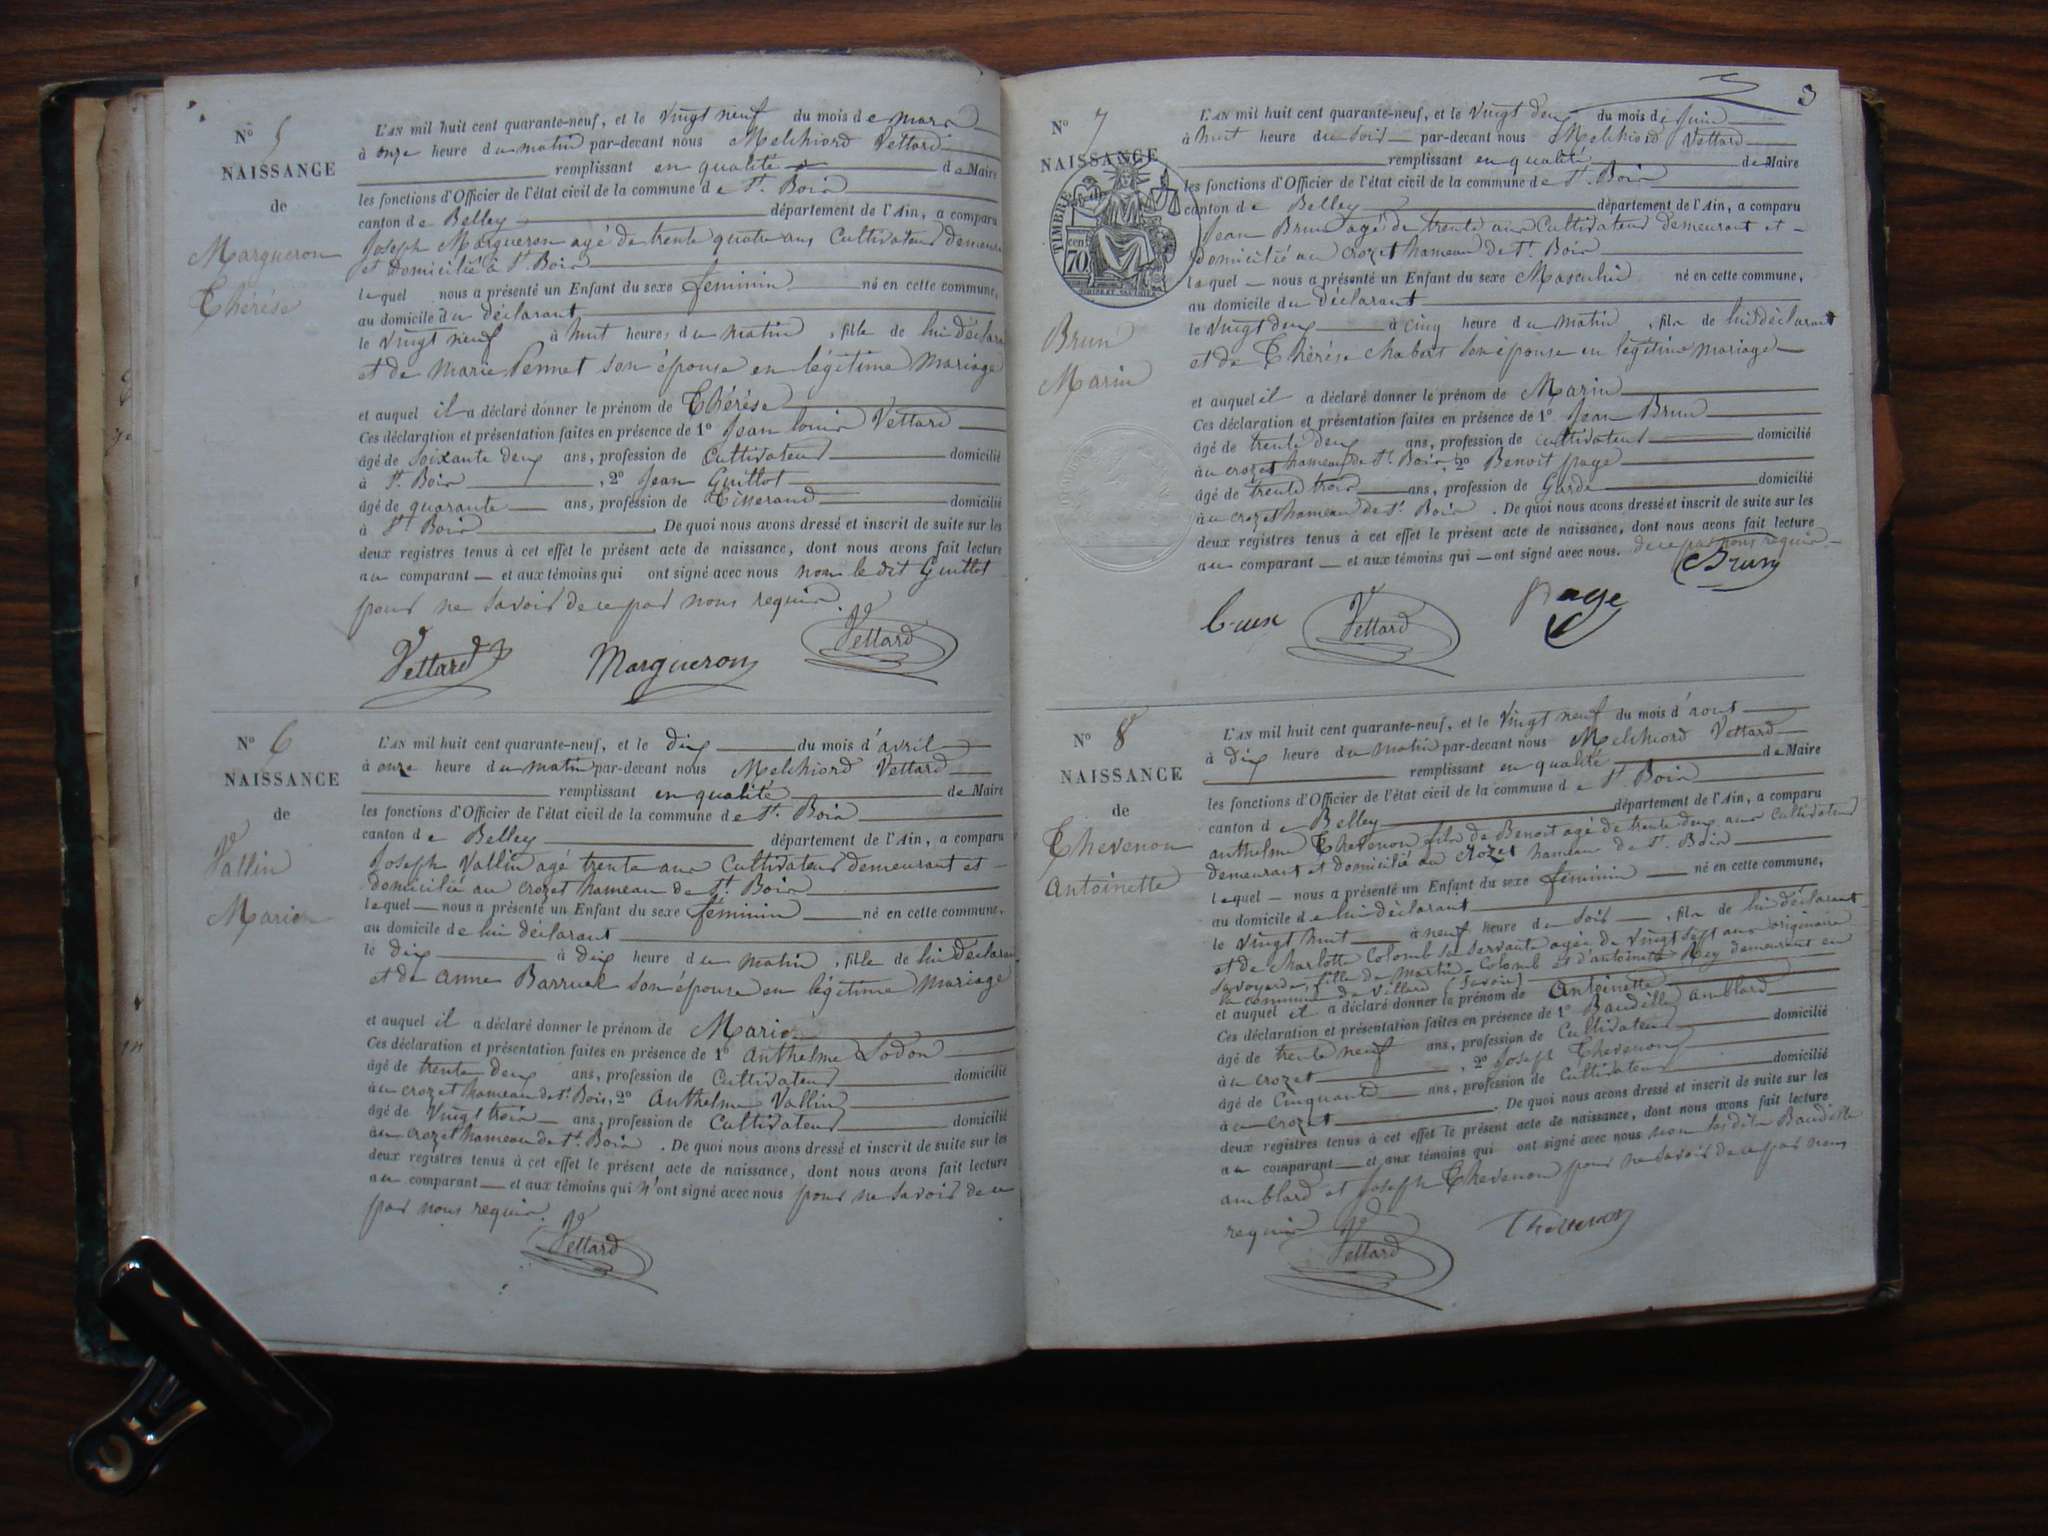 N° 5
NAISSANCE
de
Margueron
Thérèse
L'AN mil huit cent quarante-neuf, et le vingt neuf du mois de mars
à onze heure du matin par-devant nous Melchiord Vettard
remplissant en qualité de Maire
les fonctions d'Officier de l'état civil de la commune de St. Bois
canton de Belley département de l'Ain, a comparu
Joseph Margueron agé de trente quatre ans Cultivateur demeurant
et domicilié à St. Bois
lequel nous a présenté un Enfant du sexe féminin né en cette commune,
au domicile du déclarant
le vingt neuf à huit heure, du matin, fille de lui déclarant
et de Marie Pennet son épouse en légitime mariage
et auquel il a déclaré donner le prénom de Thérèse
Ces déclaration et présentation faites en présence de 1° Jean louis Vettard
âgé de soixante deux ans, profession de Cultivateur domicilié
à St. Bois, 2° Jean Guittot
âgé de quarante ans, profession de Tisserand domicilié
à St. Bois. De quoi nous avons dressé et inscrit de suite sur les
deux registres tenus à cet effet le présent acte de naissance, dont nous avons fait lecture
au comparant et aux témoins qui ont signé avec nous non le dit Guittot
pour ne savoir de ce par nous requis.
Vettard Margueron Vettard
N° 6
NAISSANCE
de
Vallin
Marie
L'AN mil huit cent quarante-neuf, et le dix du mois d'avril
à onze heure du matin par-devant nous Melchiord Vettard
remplissant en qualité de Maire
les fonctions d'Officier de l'état civil de la commune de St. Bois
canton de Belley département de l'Ain, a comparu
Joseph Vallin agé trente ans Cultivateur demeurant et
domicilié au crozet hameau de St. Bois
lequel nous a présenté un Enfant du sexe féminin né en cette commune,
au domicile de lui déclarant
le dix à dix heure du matin, fille de lui déclarant
et de anne Barruel son épouse en légitime mariage
et auquel il a déclaré donner le prénom de Marie
Ces déclaration et présentation faites en présence de 1° anthelme Lodon
âgé de trente deux ans, profession de Cultivateur domicilié
au crozet hameau de St. Bois, 2° anthelme Vallin
âgé de vingt trois ans, profession de Cultivateur domicilié
au crozet hameau de St. Bois. De quoi nous avons dressé et inscrit de suite sur les
deux registres tenus à cet effet le présent acte de naissance, dont nous avons fait lecture
au comparant et aux témoins qui n'ont signé avec nous pour ne savoir de ce
par nous requis.
Vettard
3
N° 7
NAISSANCE
TIMBRE
70 cent
Brun
Marin
L'AN mil huit cent quarante-neuf, et le vingt deux du mois de Juin
à huit heure du soir par-devant nous Melchiord Vettard
remplissant en qualité de Maire
les fonctions d'Officier de l'état civil de la commune de St. Bois
canton de Belley département de l'Ain, a comparu
Jean Brun agé de trente ans Cultivateur demeurant et
domicilié au crozet hameau de St. Bois
lequel nous a présenté un Enfant du sexe Masculin né en cette commune,
au domicile du déclarant
le vingt deux à cinq heure du matin, fils de lui déclarant
et de Thérèse chabert son épouse en légitime mariage
et auquel il a déclaré donner le prénom de Marin
Ces déclaration et présentation faites en présence de 1° Jean Brun
âgé de trente deux ans, profession de cultivateur domicilié
au crozet hameau de St. Bois, 2° Benoit page
âgé de trente trois ans, profession de Garde domicilié
au crozet hameau de St. Bois. De quoi nous avons dressé et inscrit de suite sur les
deux registres tenus à cet effet le présent acte de naissance, dont nous avons fait lecture
au comparant et aux témoins qui ont signé avec nous. de ce par nous requis
Brun
Vettard page
N° 8
NAISSANCE
de
Thevenon
Antoinette
L'AN mil huit cent quarante-neuf, et le vingt neuf du mois d'aout
à dix heure du matin par-devant nous Melchiord Vettard
remplissant en qualité de Maire
les fonctions d'Officier de l'état civil de la commune de St. Bois
canton de Belley département de l'Ain, a comparu
anthelme Thevenon fils de Benoit agé de trente deux ans Cultivateur
demeurant et domicilié au crozet hameau de St. Bois
lequel nous a présenté un Enfant du sexe féminin né en cette commune,
au domicile de lui déclarant
le vingt huit à neuf heure du soir, fils de lui déclarant
et de charlotte Colomb sa servante agée de vingt sept ans originaire
savoyarde, fille de Martin Colomb et d'antoinette Rey demeurant en
la commune de Villard (Savoie)
et auquel il a déclaré donner le prénom de Antoinette
Ces déclaration et présentation faites en présence de 1° Baudille amblard
âgé de trente neuf ans, profession de Cultivateur domicilié
au crozet, 2° Joseph Thevenon
âgé de Cinquante ans, profession de Cultivateur domicilié
au crozet. De quoi nous avons dressé et inscrit de suite sur les
deux registres tenus à cet effet le présent acte de naissance, dont nous avons fait lecture
au comparant et aux témoins qui ont signé avec nous non les dits Baudille
amblard et Joseph Thevenon pour ne savoir de ce par nous
requis
Vettard Thevenon